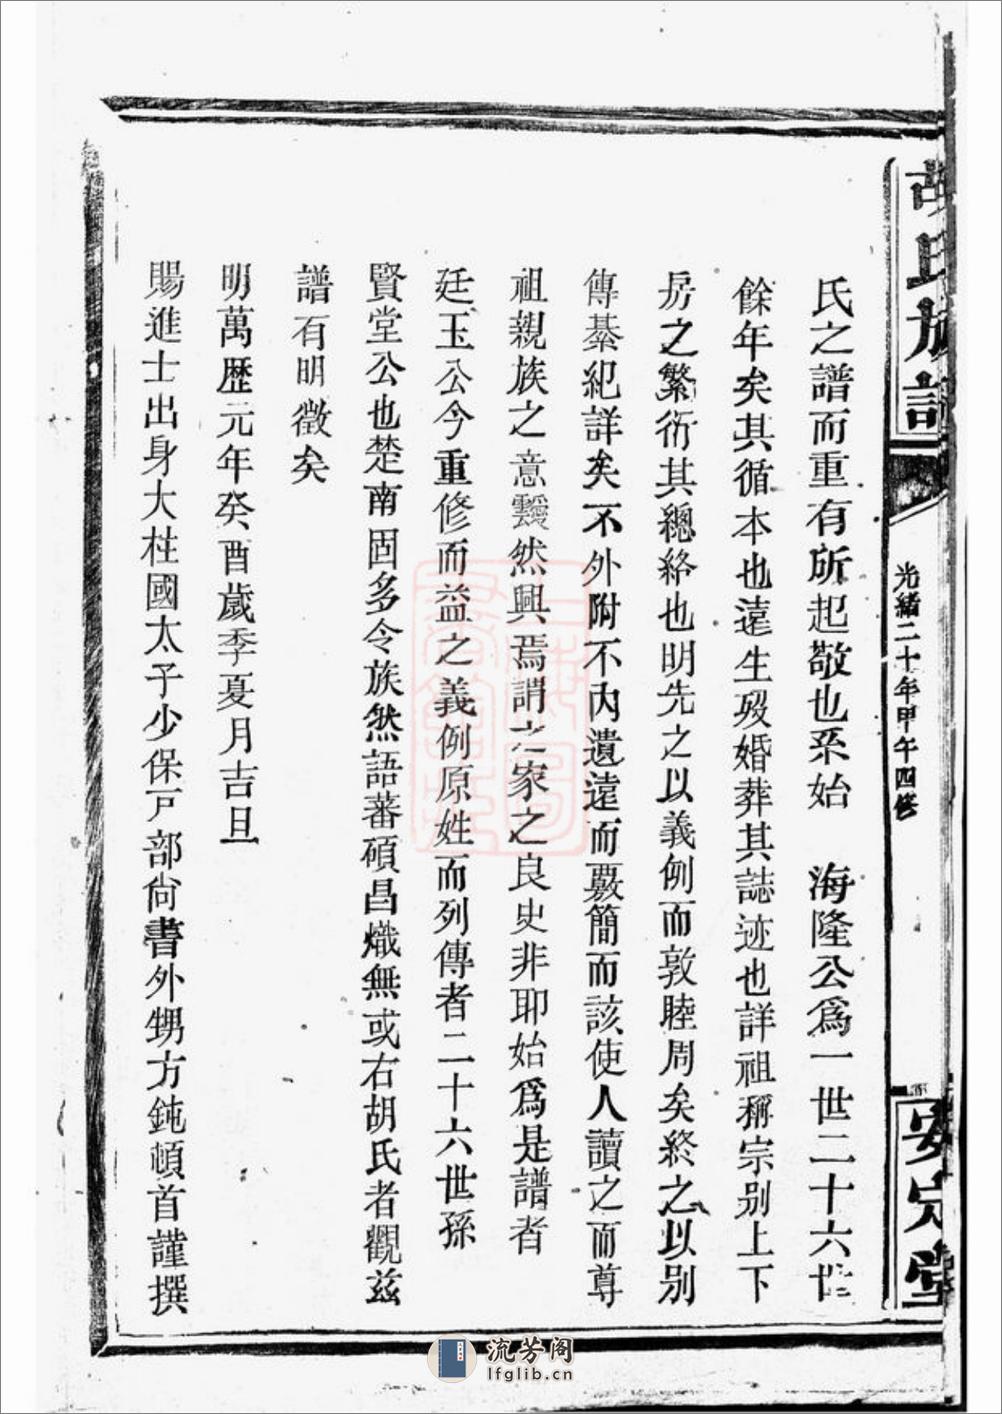 胡氏族譜
光緒二十年甲午四修
安定堂
氏之譜而重有所起敬也系始　海隆公爲一世二十六世
餘年矣其循本也遠生歿婚葬其誌迹也詳祖稱宗别上下
房之繁衍其總絡也明先之以義例而敦睦周矣終之以别
傳綦紀詳矣不外附不內遺遠而覈簡而該使人讀之而尊
祖親族之意靉然興焉謂之家之良史非耶始爲是譜者
廷玉公今重修而益之義例原姓而列傳者二十六世孫
賢堂公也楚南固多令族然語蕃碩昌熾無或右胡氏者觀玆
譜有明徵矣
明萬歷元年癸酉歲季夏月吉旦
賜進士出身大柱國太子少保戸部尙書外甥方鈍頓首謹撰
流芳阁
lfglib.cn